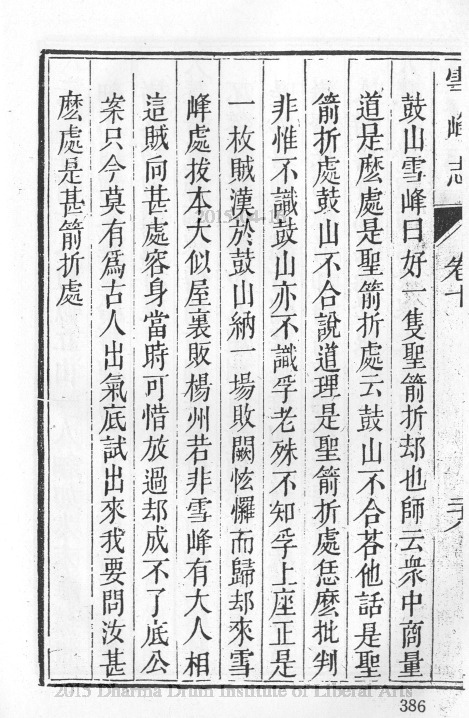 雪峰志
卷十
鼓山雪峰曰好一隻聖箭折却也師云衆中商量
道是麽處是聖箭折處云鼓山不合答他話是聖
箭折處鼓山不合說道理是聖箭折處恁麽批判
非惟不識鼓山亦不識孚老殊不知孚上座正是
一枚賊漢於鼓山納一場敗闕忺㦬而歸却來雪
峰處拔本大似屋裏販楊州若非雪峰有大人相
這賊向甚處容身當時可惜放過却成不了底公
案只今莫有爲古人出氣底試出來我要問汝甚
麽處是甚箭折處
2015 Dharma Drum Institute of Liberal Arts
386